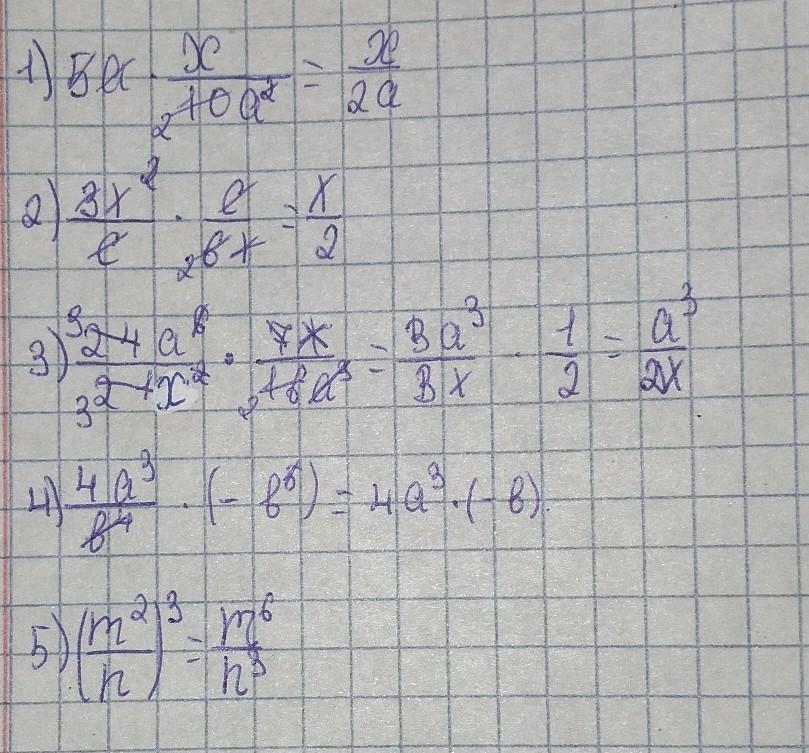 1) 5a · x/10a² = x/2a
2) 3x²/c · c/6x = x/2
3) 24a⁶/21x² · 7x/16a³ = 3a³/3x · 1/2 = a³/2x
4) 4a³/b⁴ · (- b⁵) = 4a³ · (- b).
5) (m²/n)³ = m⁶/n³